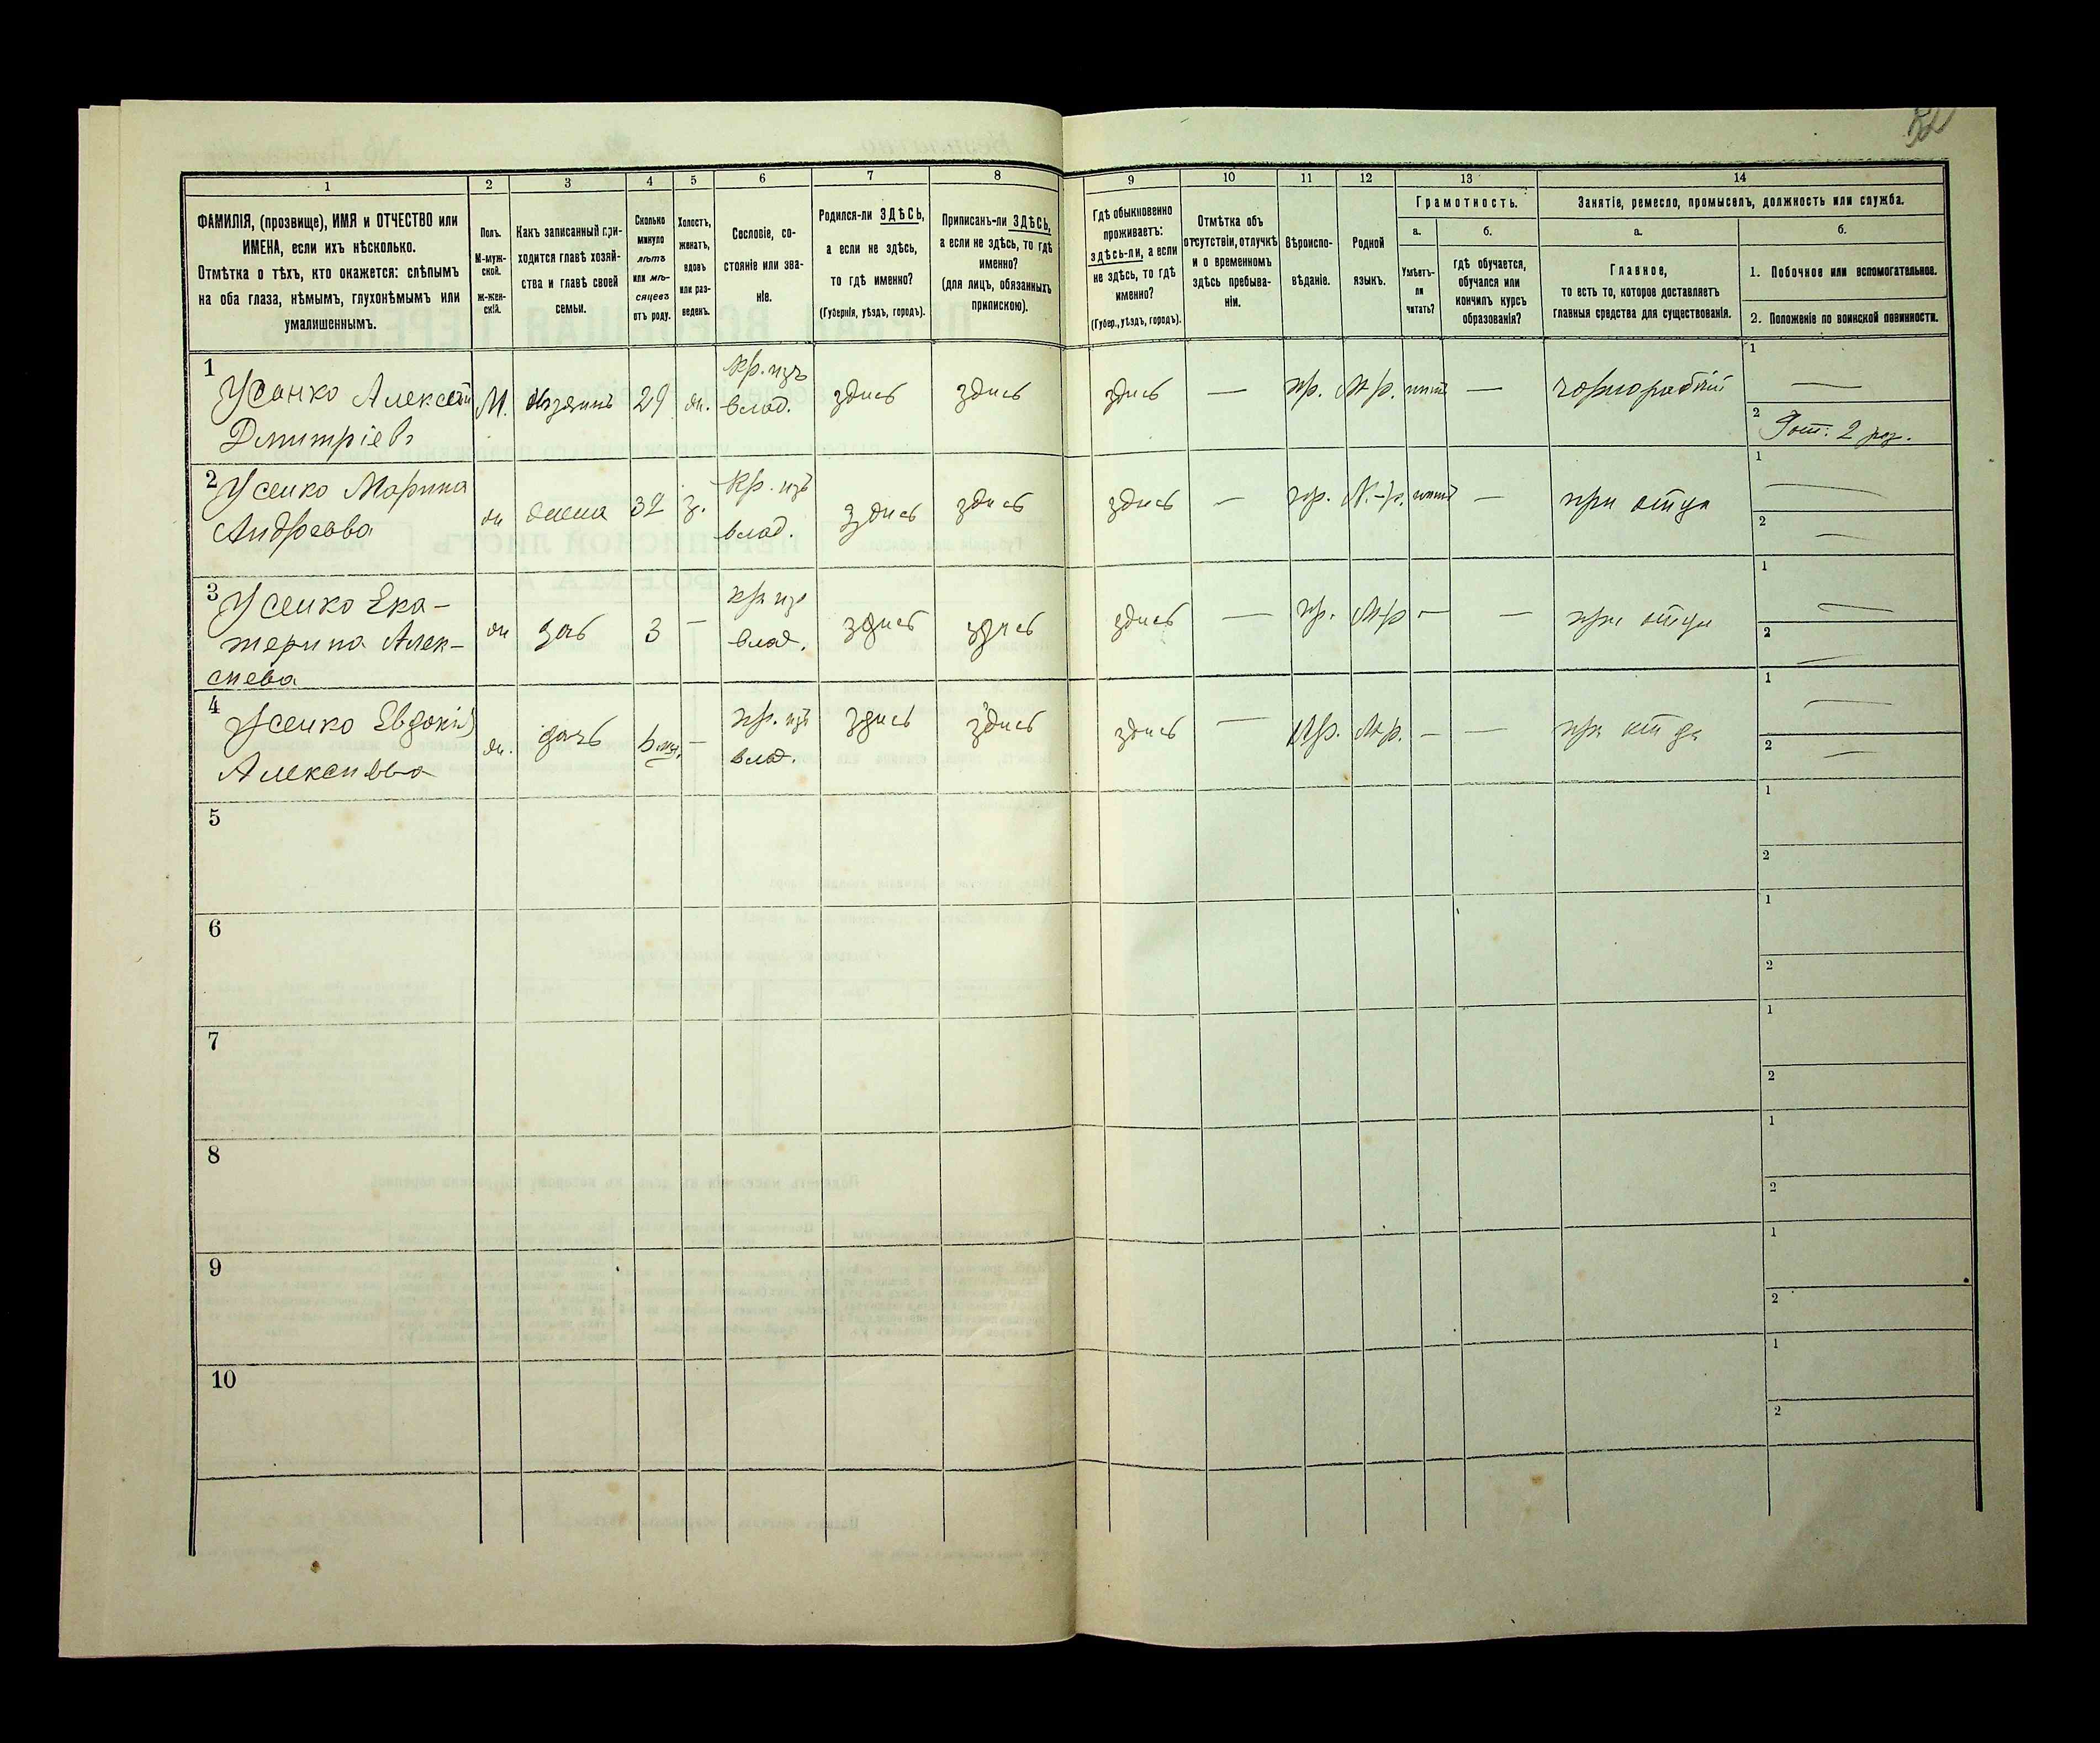 32
1 2 3 4 5 6 7 8 9 10 11 12 13 14
ФАМИЛІЯ, (прозвище), ИМЯ и ОТЧЕСТВО или
ИМЕНА, если ихъ нѣсколько.
Отмѣтка о тѣхъ, кто окажется: слѣпымъ
на оба глаза, нѣмымъ, глухонѣмымъ или
умалишеннымъ.
Полъ.
М-муж-
ской.
ж-жен-
скій.
Какъ записанный при-
ходится главѣ хозяй-
ства и главѣ своей
семьи.
Сколько
минуло
лѣтъ
или мѣ-
сяцевъ
отъ роду.
Холостъ,
женатъ,
вдовъ
или раз-
веденъ.
Сословіе, со-
стояніе или зва-
ніе.
Родился-ли ЗДѢСЬ,
а если не здѣсь,
то гдѣ именно?
(Губернія, уѣздъ, городъ).
Приписанъ-ли ЗДѢСЬ,
а если не здѣсь, то гдѣ
именно?
(для лицъ, обязанныхъ
припискою).
Гдѣ обыкновенно
проживаетъ:
здѣсь-ли, а если
не здѣсь, то гдѣ
именно?
(Губер., уѣздъ, городъ).
Отмѣтка объ
отсутствіи, отлучкѣ
и о временномъ
здѣсь пребыва-
ніи.
Вѣроиспо-
вѣданіе.
Родной
языкъ.
Грамотность.
а.
Умѣетъ-
ли
читать?
б.
гдѣ обучается,
обучался или
кончилъ курсъ
образованія?
Занятіе, ремесло, промыселъ, должность или служба.
а.
Главное,
то есть то, которое доставляетъ
главныя средства для существованія.
б.
1. Побочное или вспомогательное.
2. Положеніе по воинской повинности.
1
Усенко Алексей
Дмитріевъ
М.
Хозяинъ
29
ж.
Кр. изъ
влад.
здись
здись
здись
—
пр.
М-р.
нитъ
—
чорнорабчий
1
—
2
2 раз.
2
Усенко Марина
Андреева
ж
жена
32
з.
Кр. изъ
влад.
здись
здись
здись
—
пр.
М-р.
нитъ
—
при отца
1
—
2
—
3
Усенко Ека-
терина Алек-
сиева
ж
дочь
3
—
кр. из
влад.
здись
здись
здись
—
пр.
М-р
—
—
при отца
1
—
2
—
4
Усенко Евдокія
Алексиева
ж.
дочь
—
кр. изъ
влад.
здись
здись
здись
—
пр.
М-р.
—
—
при отца
1
—
2
—
5
1
2
6
1
2
7
1
2
8
1
2
9
1
2
10
1
2